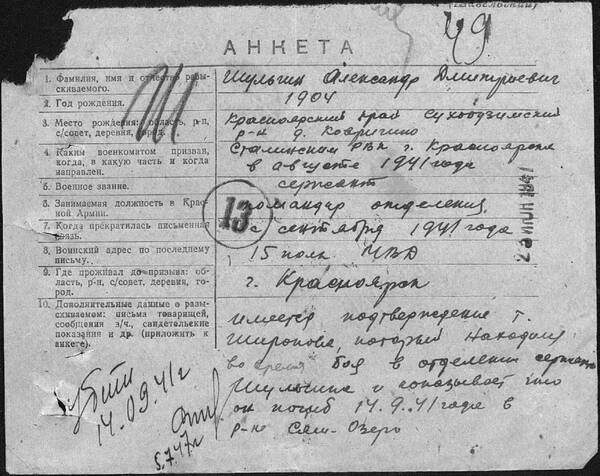 49
АНКЕТА
1. Фамилия, имя и отчество разыскиваемого.
Шульгин Александр Дмитриевич
2. Год рождения.
1904
3. Место рождения: область, р-н, с/совет, деревня, город.
Красноярский край Сухобузимский
р-н д. Ковригино
4. Каким военкоматом призван, когда, в какую часть и когда направлен.
Сталинском РВК г. Красноярска
в августе 1941 года
5. Военное звание.
сержант
6. Занимаемая должность в Красной Армии.
командир отделения
7. Когда прекратилась письменная связь.
с сентября 1941 года
8. Воинский адрес по последнему письму.
15 полк
9. Где проживал до призыва: область, р-н, с/совет, деревня, город.
г. Красноярск
10. Дополнительные данные о разыскиваемом: письма товарищей, сообщения з/ч., свидетельские показания и др. (приложить к анкете).
имеется подтверждение т.
Широкова, который находился
во время боя в отделении сержанта
Шульгина и показывает что
он погиб 14.9.41 года в
р-не Сям-Озеро
Ш
13
2 ИЮН 1947
Убит
14.09.41г
5.7.47г